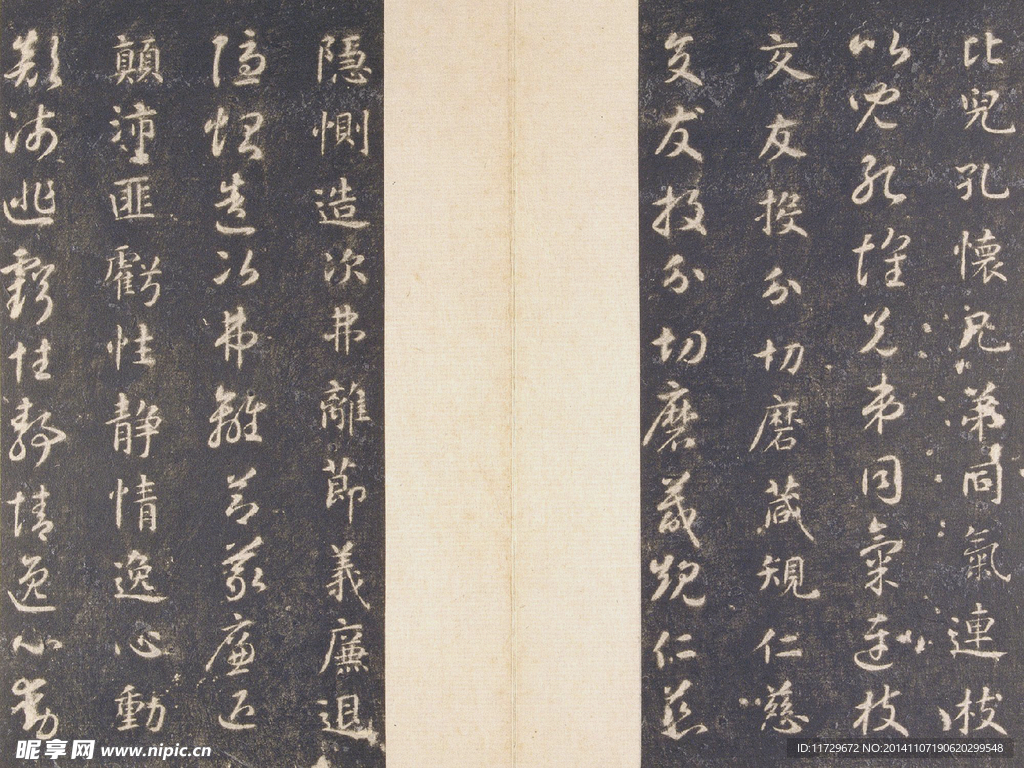 比兒孔懷兄弟同氣連枝
比兒孔懷兄弟同氣連枝
交友投分切磨箴規仁慈
交友投分切磨箴規仁慈
隱惻造次弗離節義廉退
隱惻造次弗離節義廉退
顛沛匪虧性静情逸心動
顛沛匪虧性静情逸心動
昵享网 www.nipic.cn
ID:11729672 NO:20141107190620299548